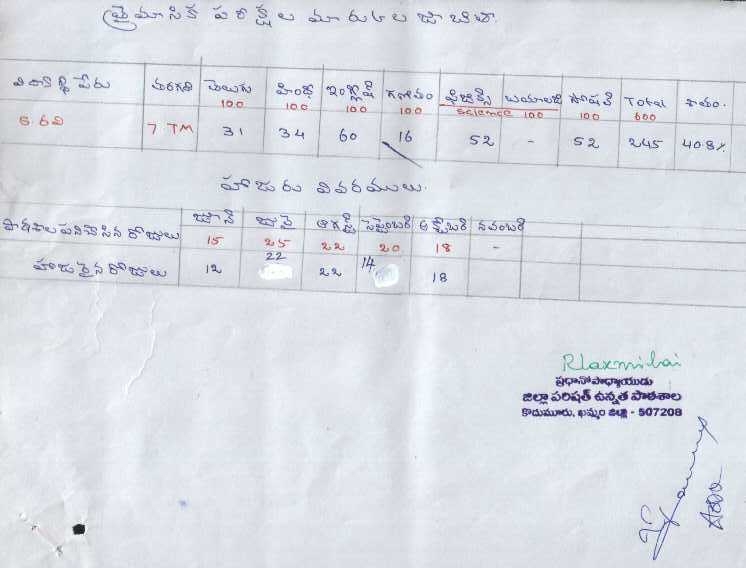 త్రైమాసిక పరీక్షల మారుకుల జాబితా.
విద్యార్థి పేరు తరగతి తెలుగు హిందీ ఇంగ్లీష్ గణితం ఫిజిక్స్ బయాలజీ సోషల్ Total శాతం.
100 100 100 100 Science 100 100 600
S. రవి 7 TM 31 34 60 16 52 - 52 245 40.8%
హాజరు వివరములు.
జూన్ జులై ఆగస్ట్ సెప్టెంబర్ అక్టోబర్ నవంబర్
పాఠశాల పనిచేసిన రోజులు 15 25 22 20 18 -
హాజరైన రోజులు 12 22 22 14 18
Rlaxmibai
ప్రధానోపాధ్యాయుడు
జిల్లా పరిషత్ ఉన్నత పాఠశాల
కొదుమూరు, ఖమ్మం జిల్లా - 507208